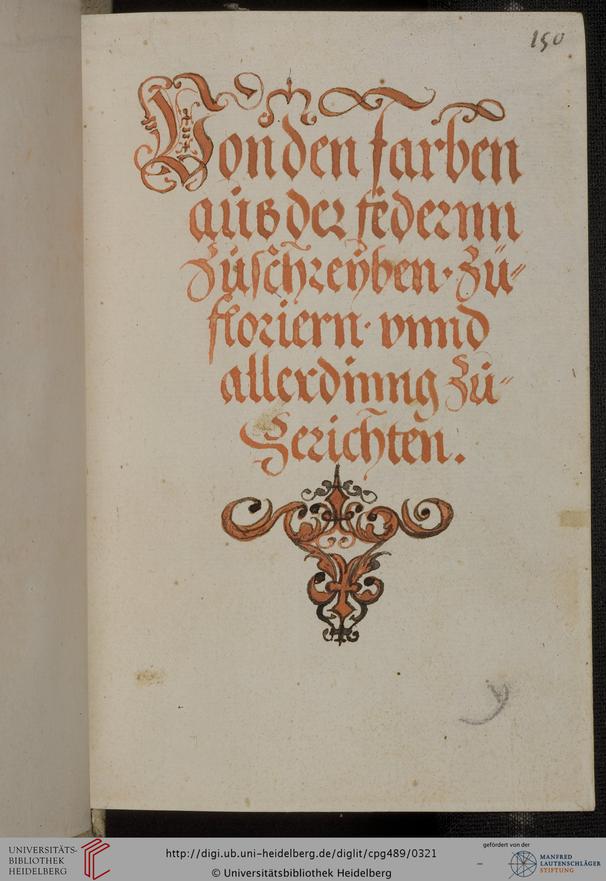 150
Von den farben
auß der federnn
Züschreÿben · Zü⸗
floriern · vnnd
allerdinng Zü⸗
Gerichten.
UNIVERSITÄTS-
BIBLIOTHEK
HEIDELBERG
http://digi.ub.uni-heidelberg.de/diglit/cpg489/0321
© Universitätsbibliothek Heidelberg
gefördert von der
MANFRED
LAUTENSCHLÄGER
STIFTUNG